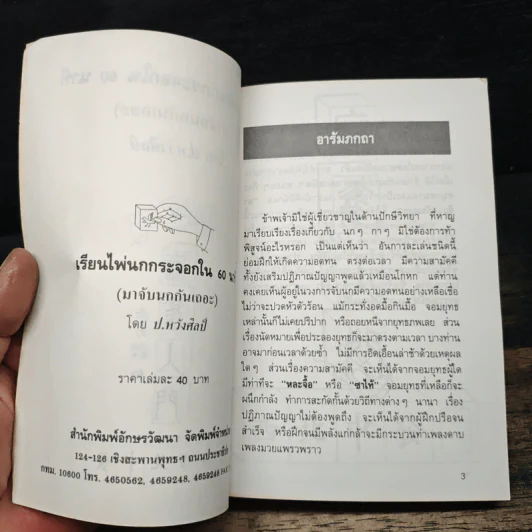 เรียนไพ่นกกระจอกใน 60 นาที
(มาจับนกกันเถอะ)
โดย ป.หวังศิลป์
ราคาเล่มละ 40 บาท
สำนักพิมพ์อักษรวัฒนา จัดพิมพ์จำหน่าย
124-126 เชิงสะพานพุทธฯ ถนนประชาธิปก
กทม. 10600 โทร. 4650562, 4659248, 4659248
อารัมภกถา
ข้าพเจ้ามิใช่ผู้เชี่ยวชาญในด้านปักษีวิทยา ที่หาญ
มาเรียบเรียงเรื่องเกี่ยวกับ นก ๆ กา ๆ มิใช่ต้องการท้า
พิสูจน์อะไรหรอก เป็นแต่เห็นว่า อันการละเล่นชนิดนี้
ย่อมฝึกให้เกิดความอดทน ตรงต่อเวลา มีความสามัคคี
ทั้งยังเสริมปฏิภาณปัญญาพูดแล้วเหมือนโกหก แต่ท่าน
คงเคยเห็นผู้อยู่ในวงการจับนกมีความอดทนอย่างเหลือเชื่อ
ไม่ว่าจะปวดหัวตัวร้อน แม้กระทั่งอดมื้อกินมื้อ จอมยุทธ
เหล่านั้นก็ไม่เคยปริปาก หรือถอยหนีจากยุทธภพเลย ส่วน
เรื่องนัดหมายเพื่อประลองยุทธก็จะมาตรงตามเวลา บางท่าน
อาจมาก่อนเวลาด้วยซ้ำ ไม่มีการอิดเอื้อนล่าช้าด้วยเหตุผล
ใด ๆ ส่วนเรื่องความสามัคคี จะเห็นได้จากจอมยุทธผู้ใด
มีท่าที่จะ "หละจื้อ" หรือ "ซาไห้" จอมยุทธที่เหลือก็จะ
ผนึกกำลัง ทำการสะกัดกั้นด้วยวิธีทางต่าง ๆ นานา เรื่อง
ปฏิภาณปัญญาไม่ต้องพูดถึง จะเห็นได้จากผู้ฝึกปรือจน
สำเร็จ หรือฝึกจนมีพลังแก่กล้าจะมีกระบวนท่าเพลงดาบ
เพลงมวยแพรวพราว
3